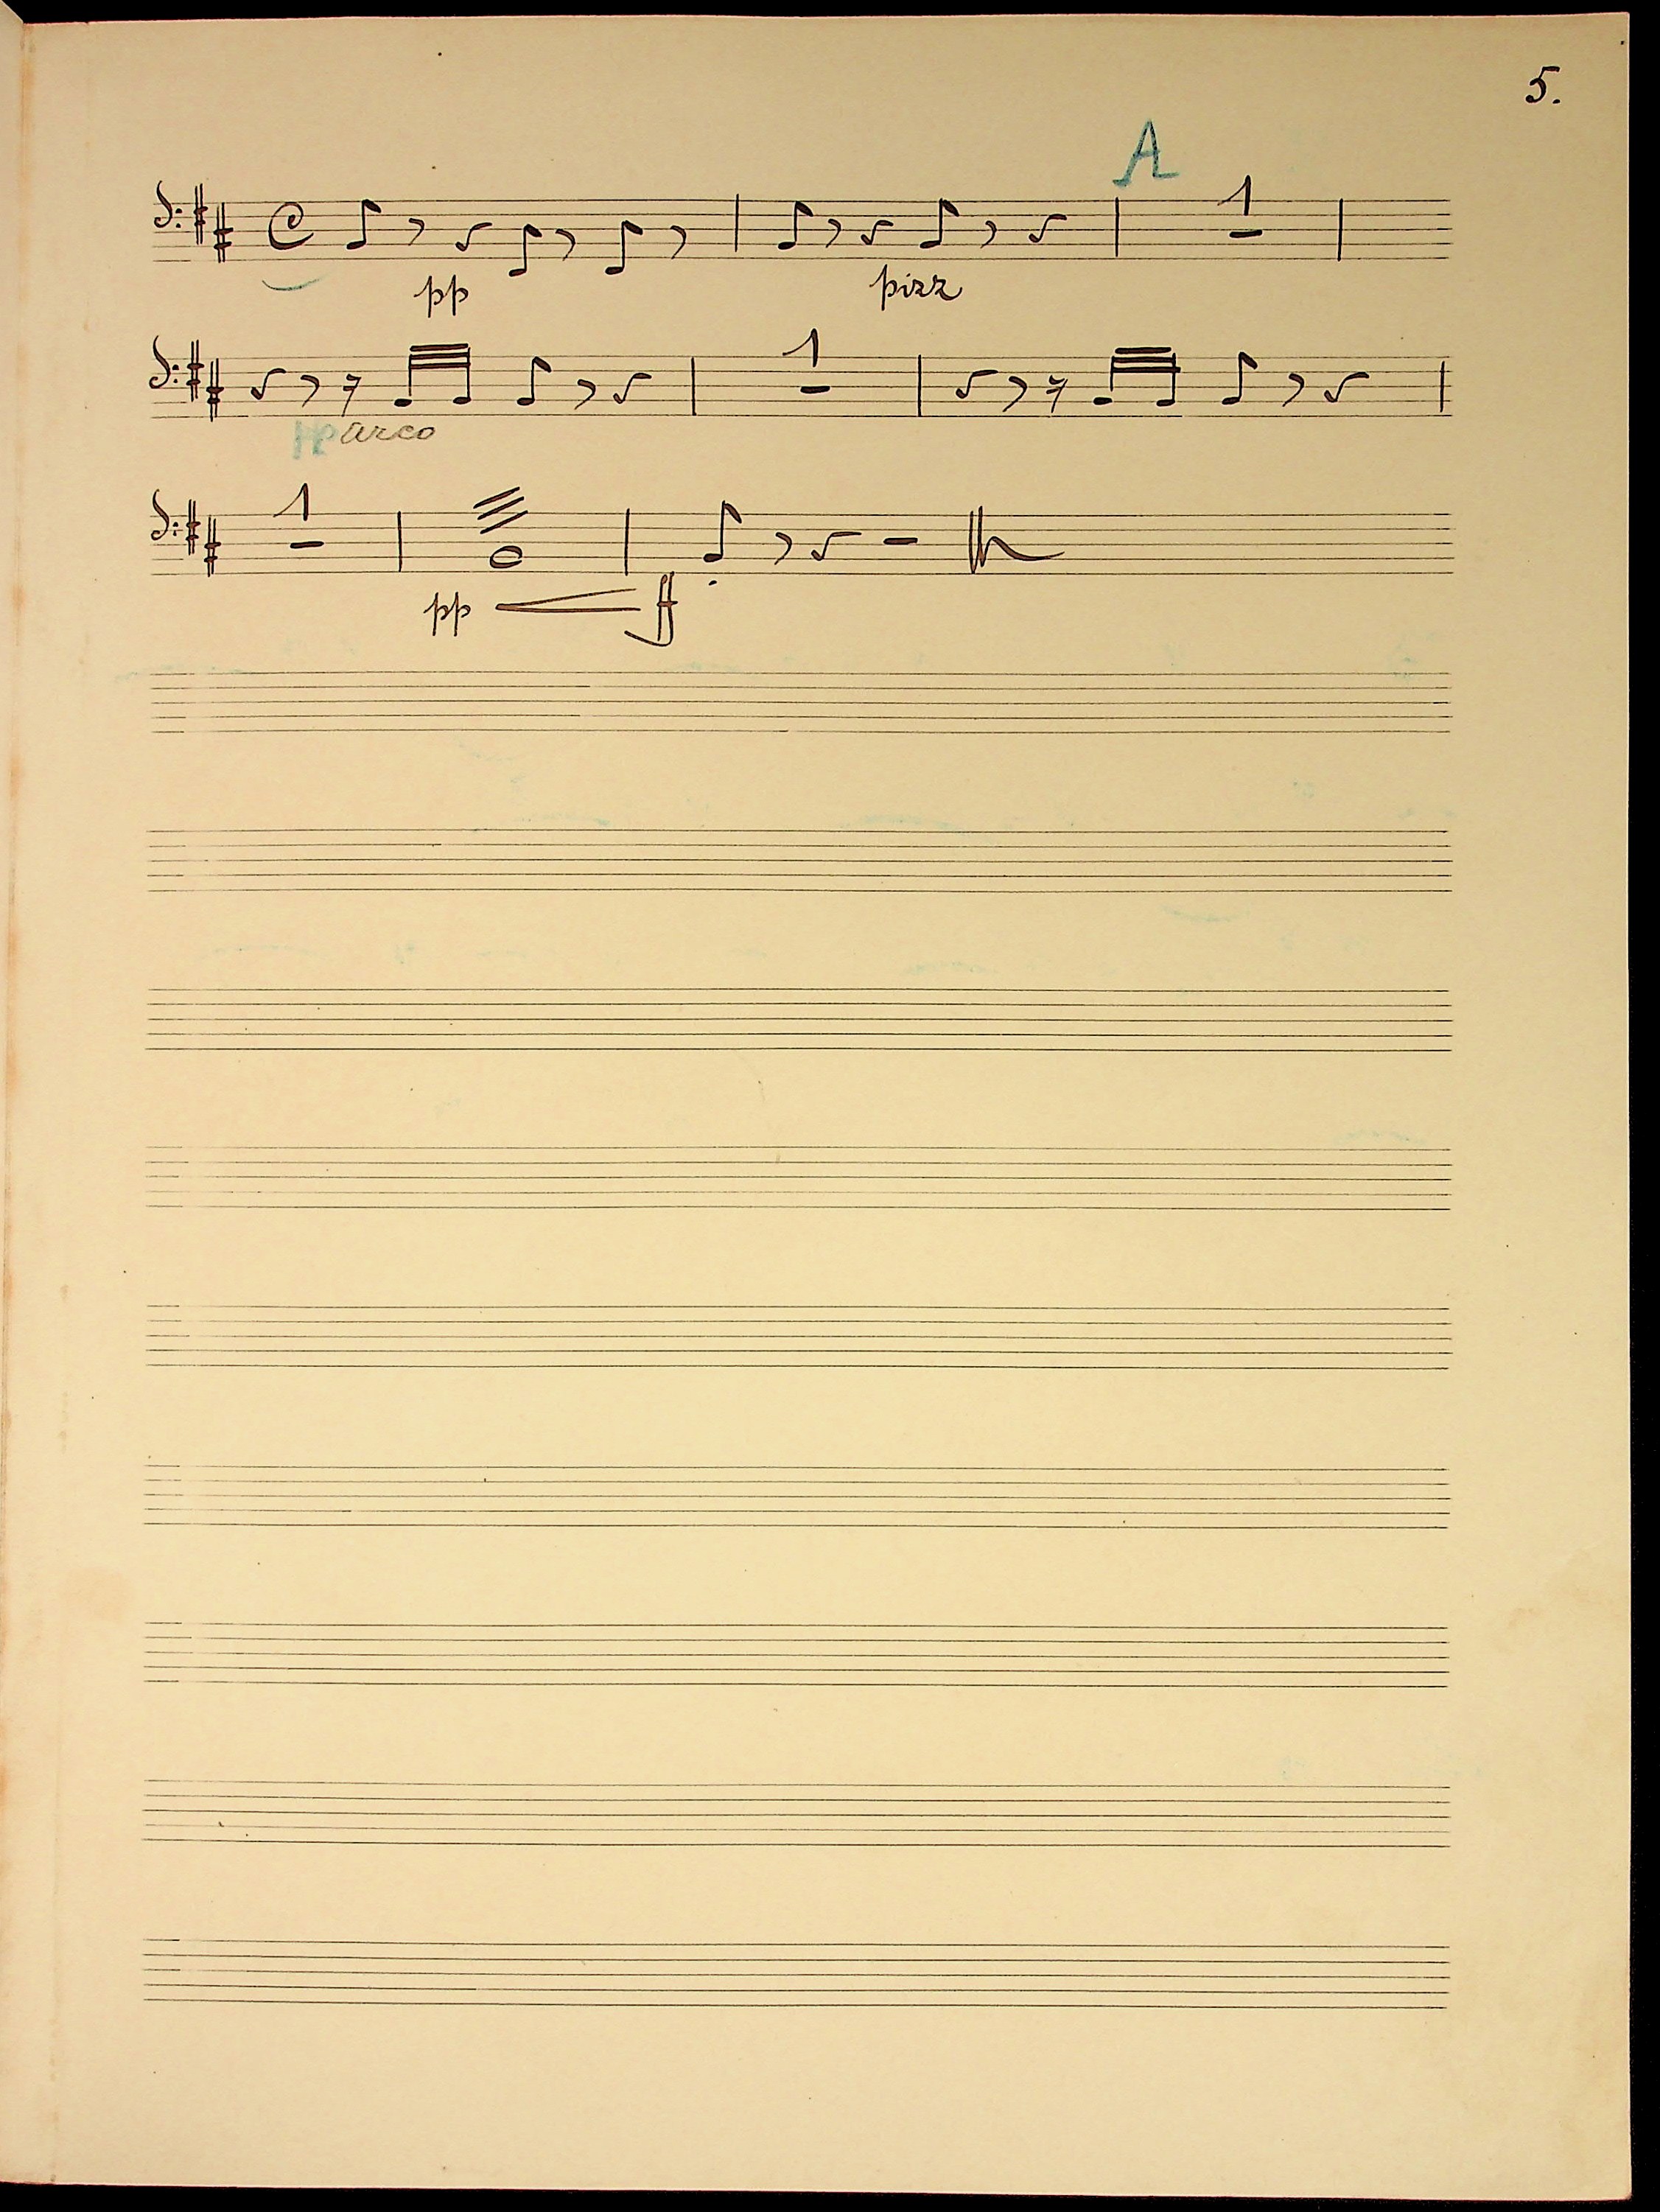 5.
A
1
pp pizz
1
arco
1
pp ff